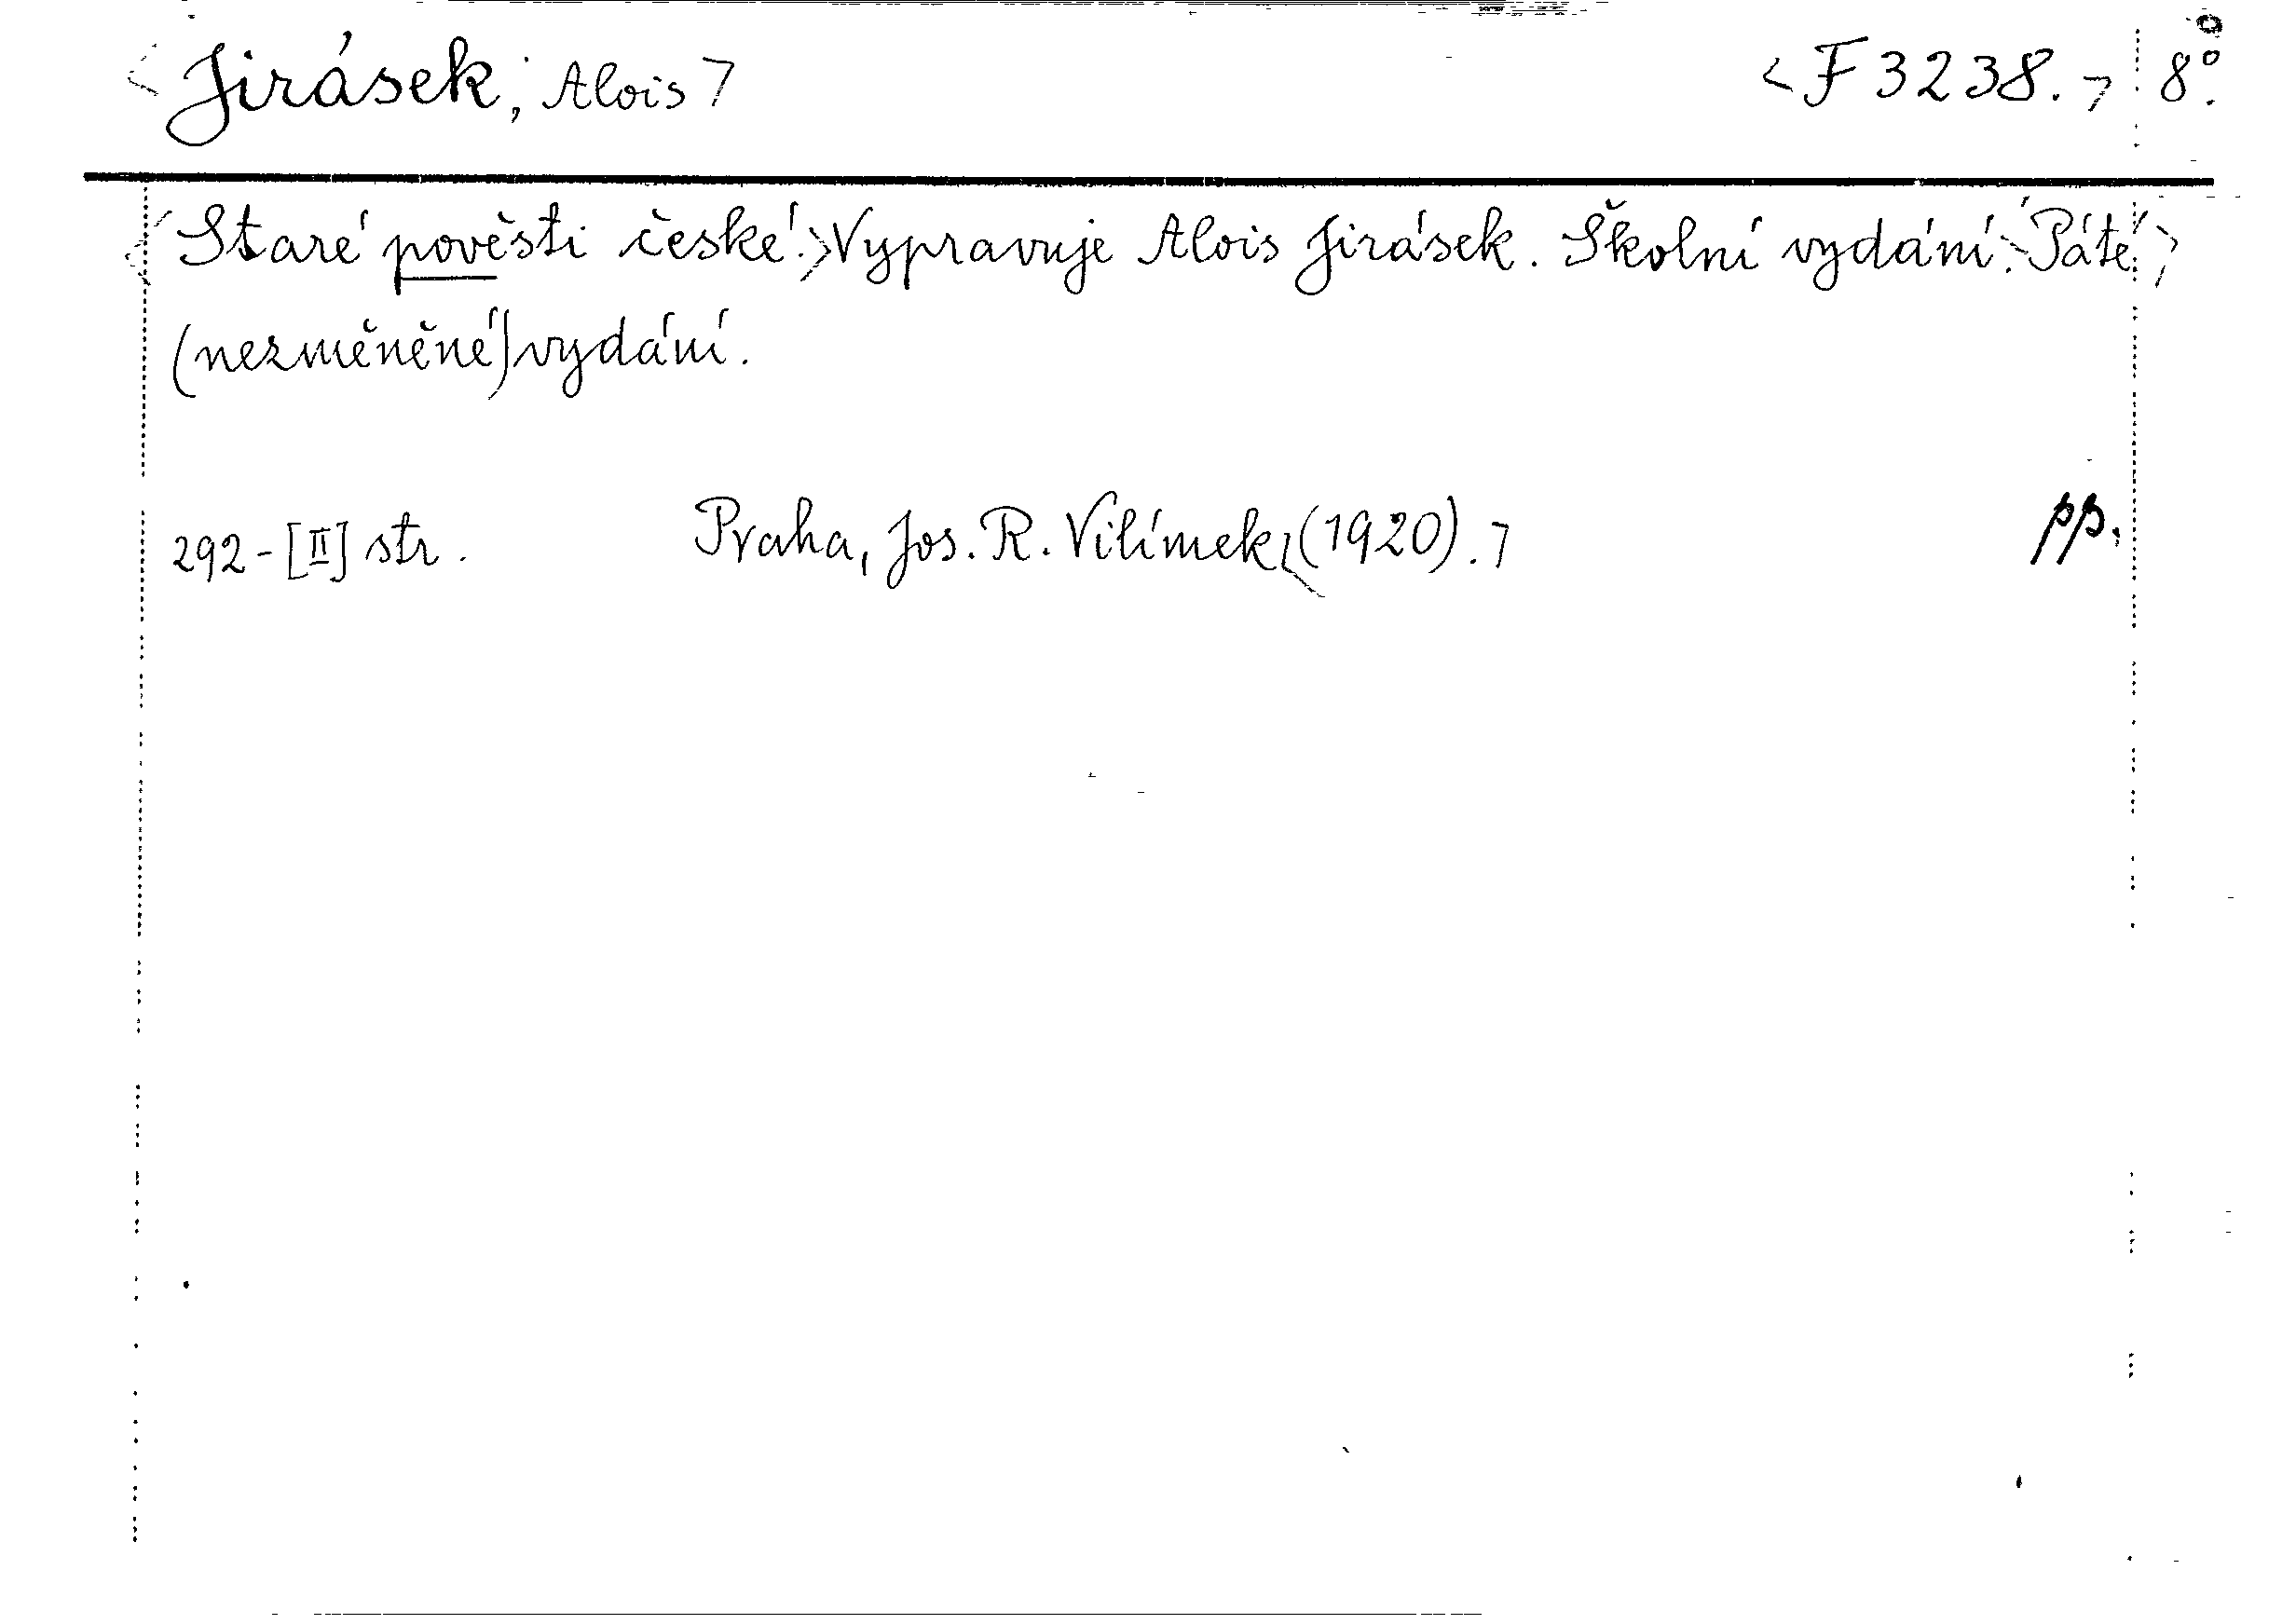 <Jirásek, Alois> <F 3238.> 8°.
<Staré pověsti české.> Vypravuje Alois Jirásek. Školní vydání. <Páté>
(nezměněné) vydání.
292-[II] str. Praha, Jos. R. Vilímek, <(1920).> pp.